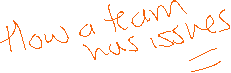 How a team
has issues